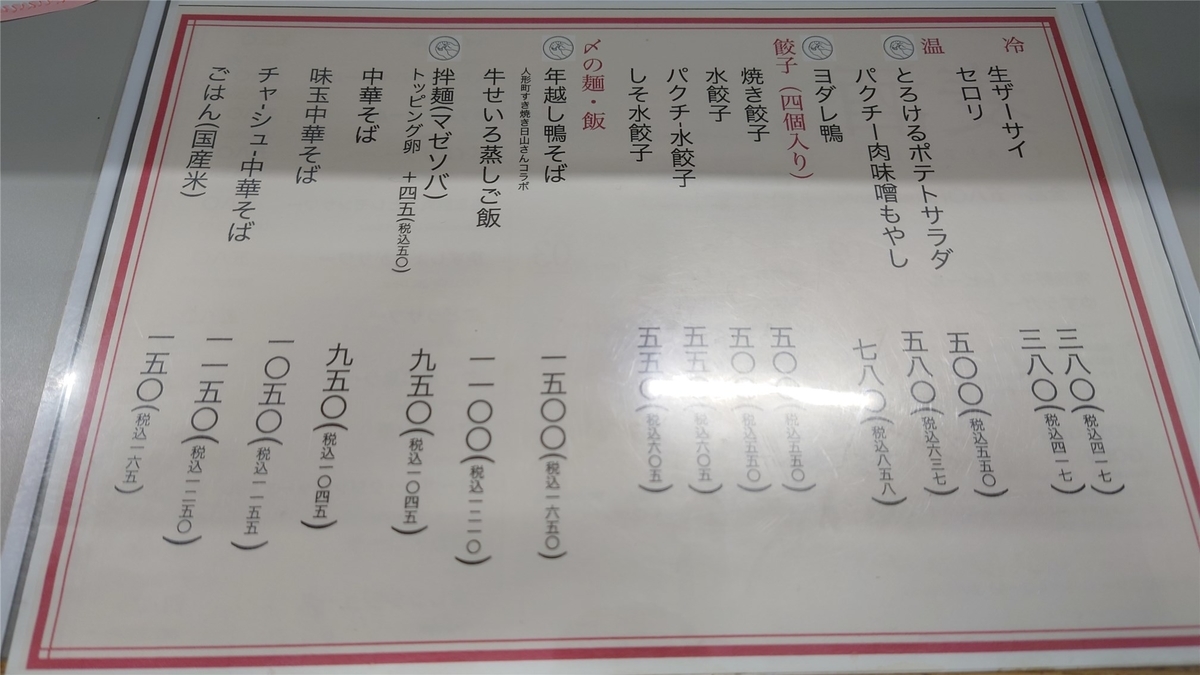 冷
生ザーサイ 三八〇(税込四一七)
セロリ 三八〇(税込四一七)
温
とろけるポテトサラダ 五〇〇(税込五五〇)
パクチー肉味噌もやし 五八〇(税込六三七)
ヨダレ鴨 七八〇(税込八五八)
餃子(四個入り)
焼き餃子 五〇〇(税込五五〇)
水餃子 五〇〇(税込五五〇)
パクチー水餃子 五五〇(税込六〇五)
しそ水餃子 五五〇(税込六〇五)
〆の麺・飯
年越し鴨そば 一五〇〇(税込一六五〇)
人形町すき焼き日山さんコラボ
牛せいろ蒸しご飯 一一〇〇(税込一二一〇)
拌麺(マゼソバ) 九五〇(税込一〇四五)
トッピング卵 +四五(税込五〇)
中華そば 九五〇(税込一〇四五)
味玉中華そば 一〇五〇(税込一一五五)
チャーシュー中華そば 一一五〇(税込一二五〇)
ごはん(国産米) 一五〇(税込一六五)